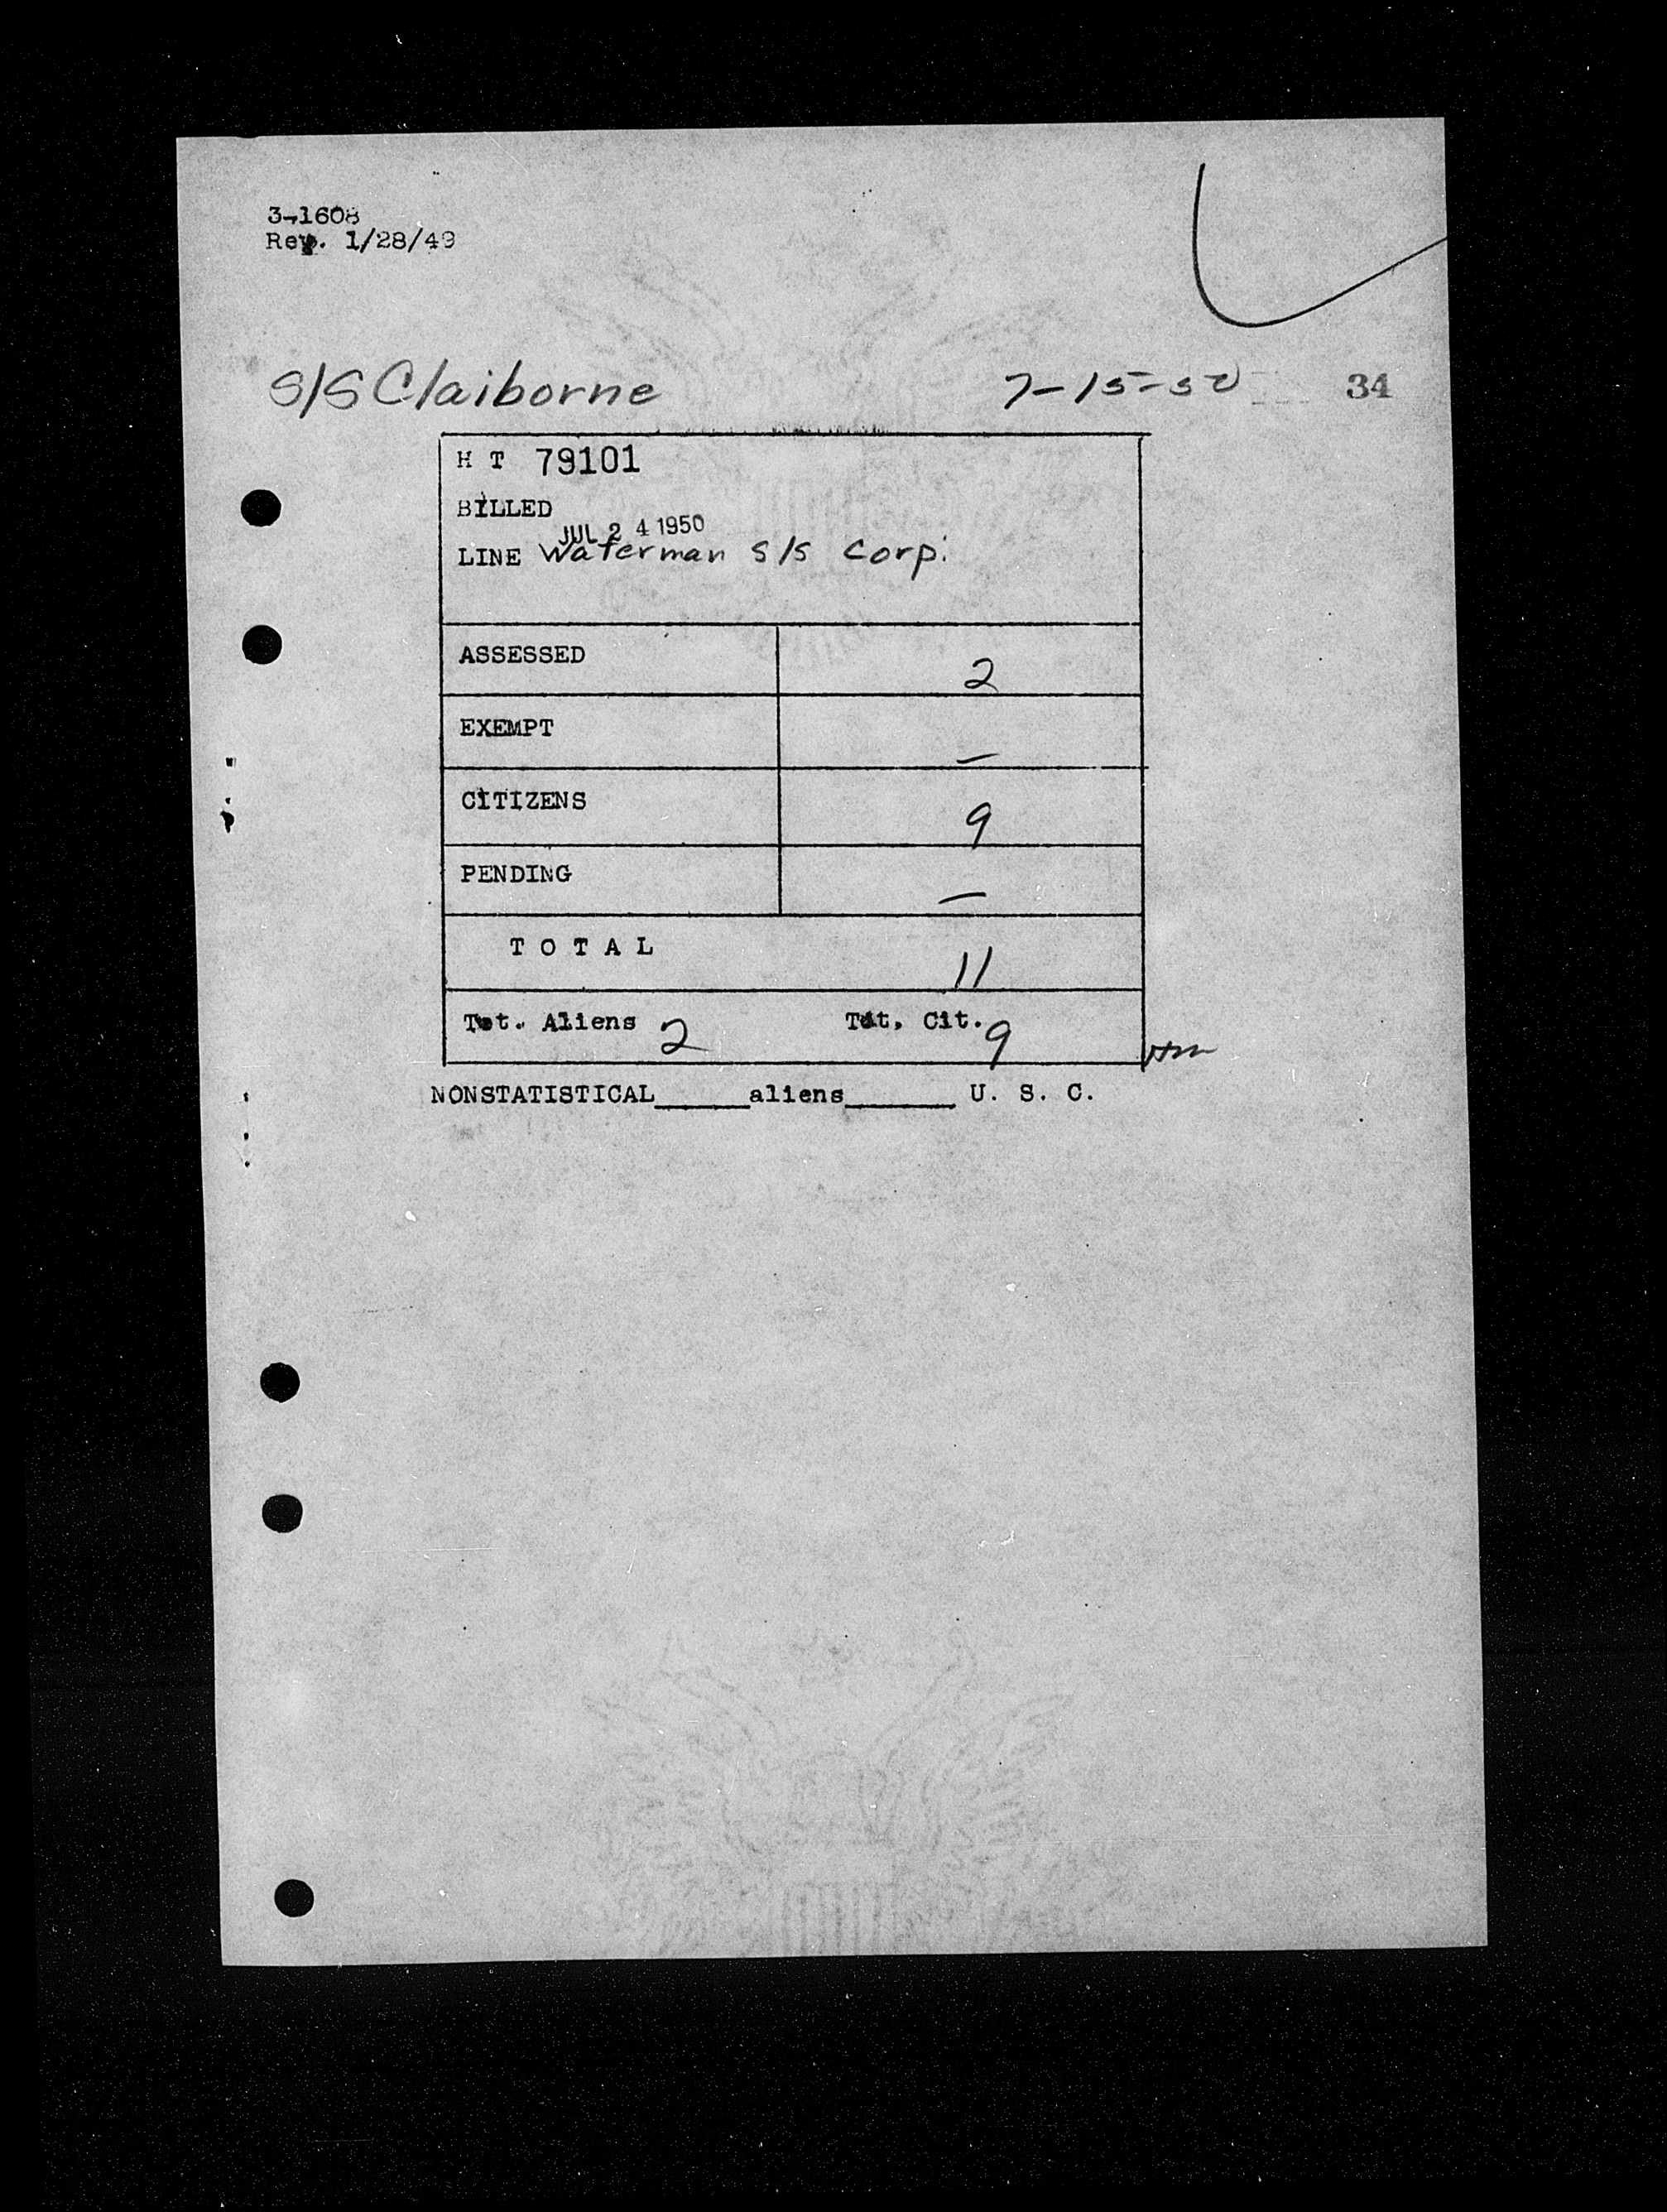 3-1608
Rev. 1/28/49
S/S Claiborne 7-15-50 34
H T 79101
BILLED
JUL 24 1950
LINE Waterman S/S Corp.
ASSESSED 2
EXEMPT —
CITIZENS 9
PENDING —
T O T A L 11
Tot. Aliens 2 Tot. Cit. 9
NONSTATISTICAL_____aliens______ U. S. C.